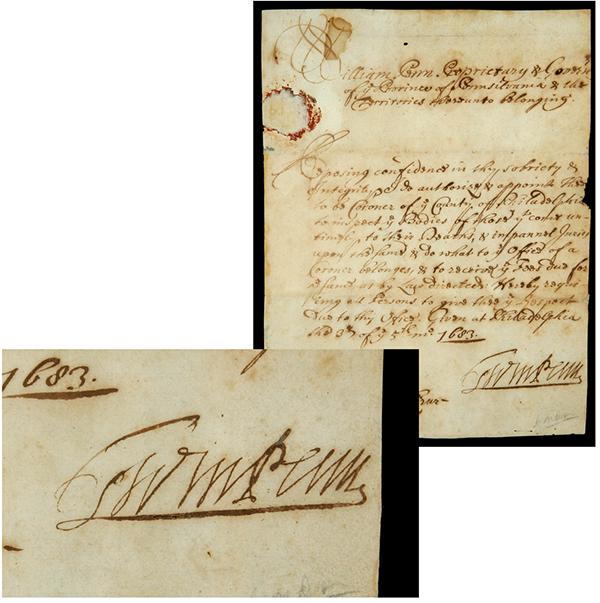 William Penn Proprietary & Govern
of ye Province of Pennsilvania & the
Territories thereunto belonging.
Reposing confidence in thy sobriety &
Integrity, do authorize & appoint thee
to be Coroner of ye County of Philadelphia
to inspect ye Bodies of those yt come un-
timely to their Deaths, & impannel Juries
upon the same & do what to ye Office of a
Coroner belonges, & to receive ye Fees due for
ye same as by Law directed: Hereby requi
ring all Persons to give thee ye Respect
Due to thy Office. Given at Philadelphia
the 3d of ye 5th mo. 1683.
Wm Penn
1683.
Wm Penn